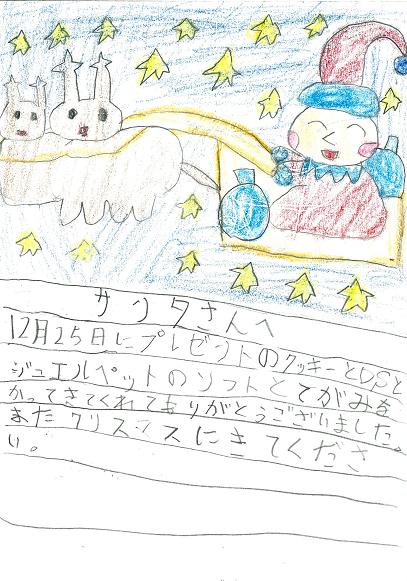 サンタさんへ
12月25日にプレゼントのクッキーとDSと
ジュエルペットのソフトとてがみを
かってきてくれてありがとうございました。
またクリスマスにきてくださ
い。